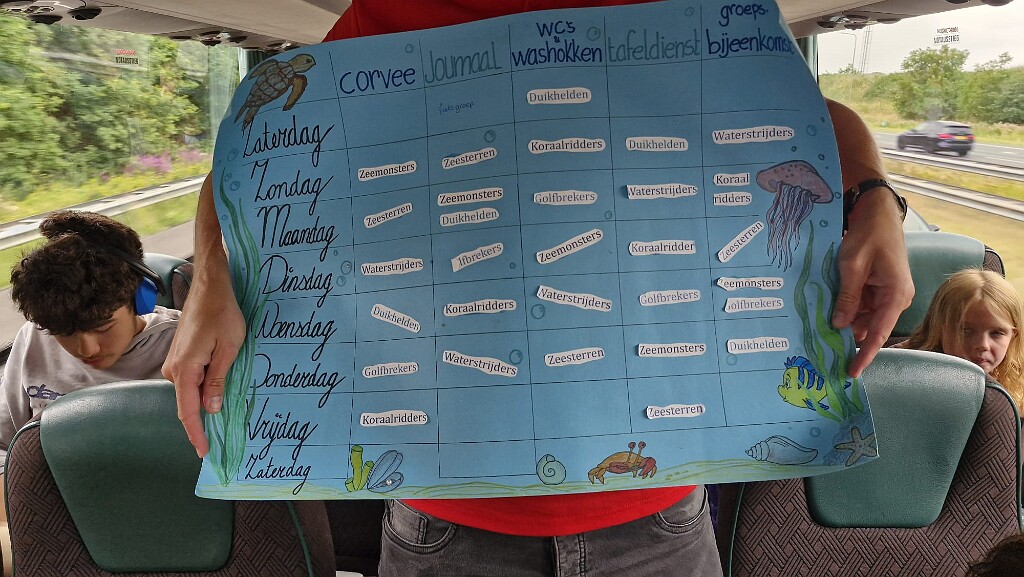 corvee Journaal WC's & washokken tafeldienst groeps. bijeenkomst
Zaterdag Duikhelden
Zondag Zeemonsters Zeesterren Koraalridders Duikhelden Waterstrijders
Maandag Zeesterren Zeemonsters Duikhelden Golfbrekers Waterstrijders Koraal ridders
Dinsdag Waterstrijders lfbrekers Zeemonsters Koraalridder Zeesterren
Woensdag Duikhelden Koraalridders Waterstrijders Golfbrekers Zeemonsters Golfbrekers
Donderdag Golfbrekers Waterstrijders Zeesterren Zeemonsters Duikhelden
Vrijdag Koraalridders Zeesterren
Zaterdag